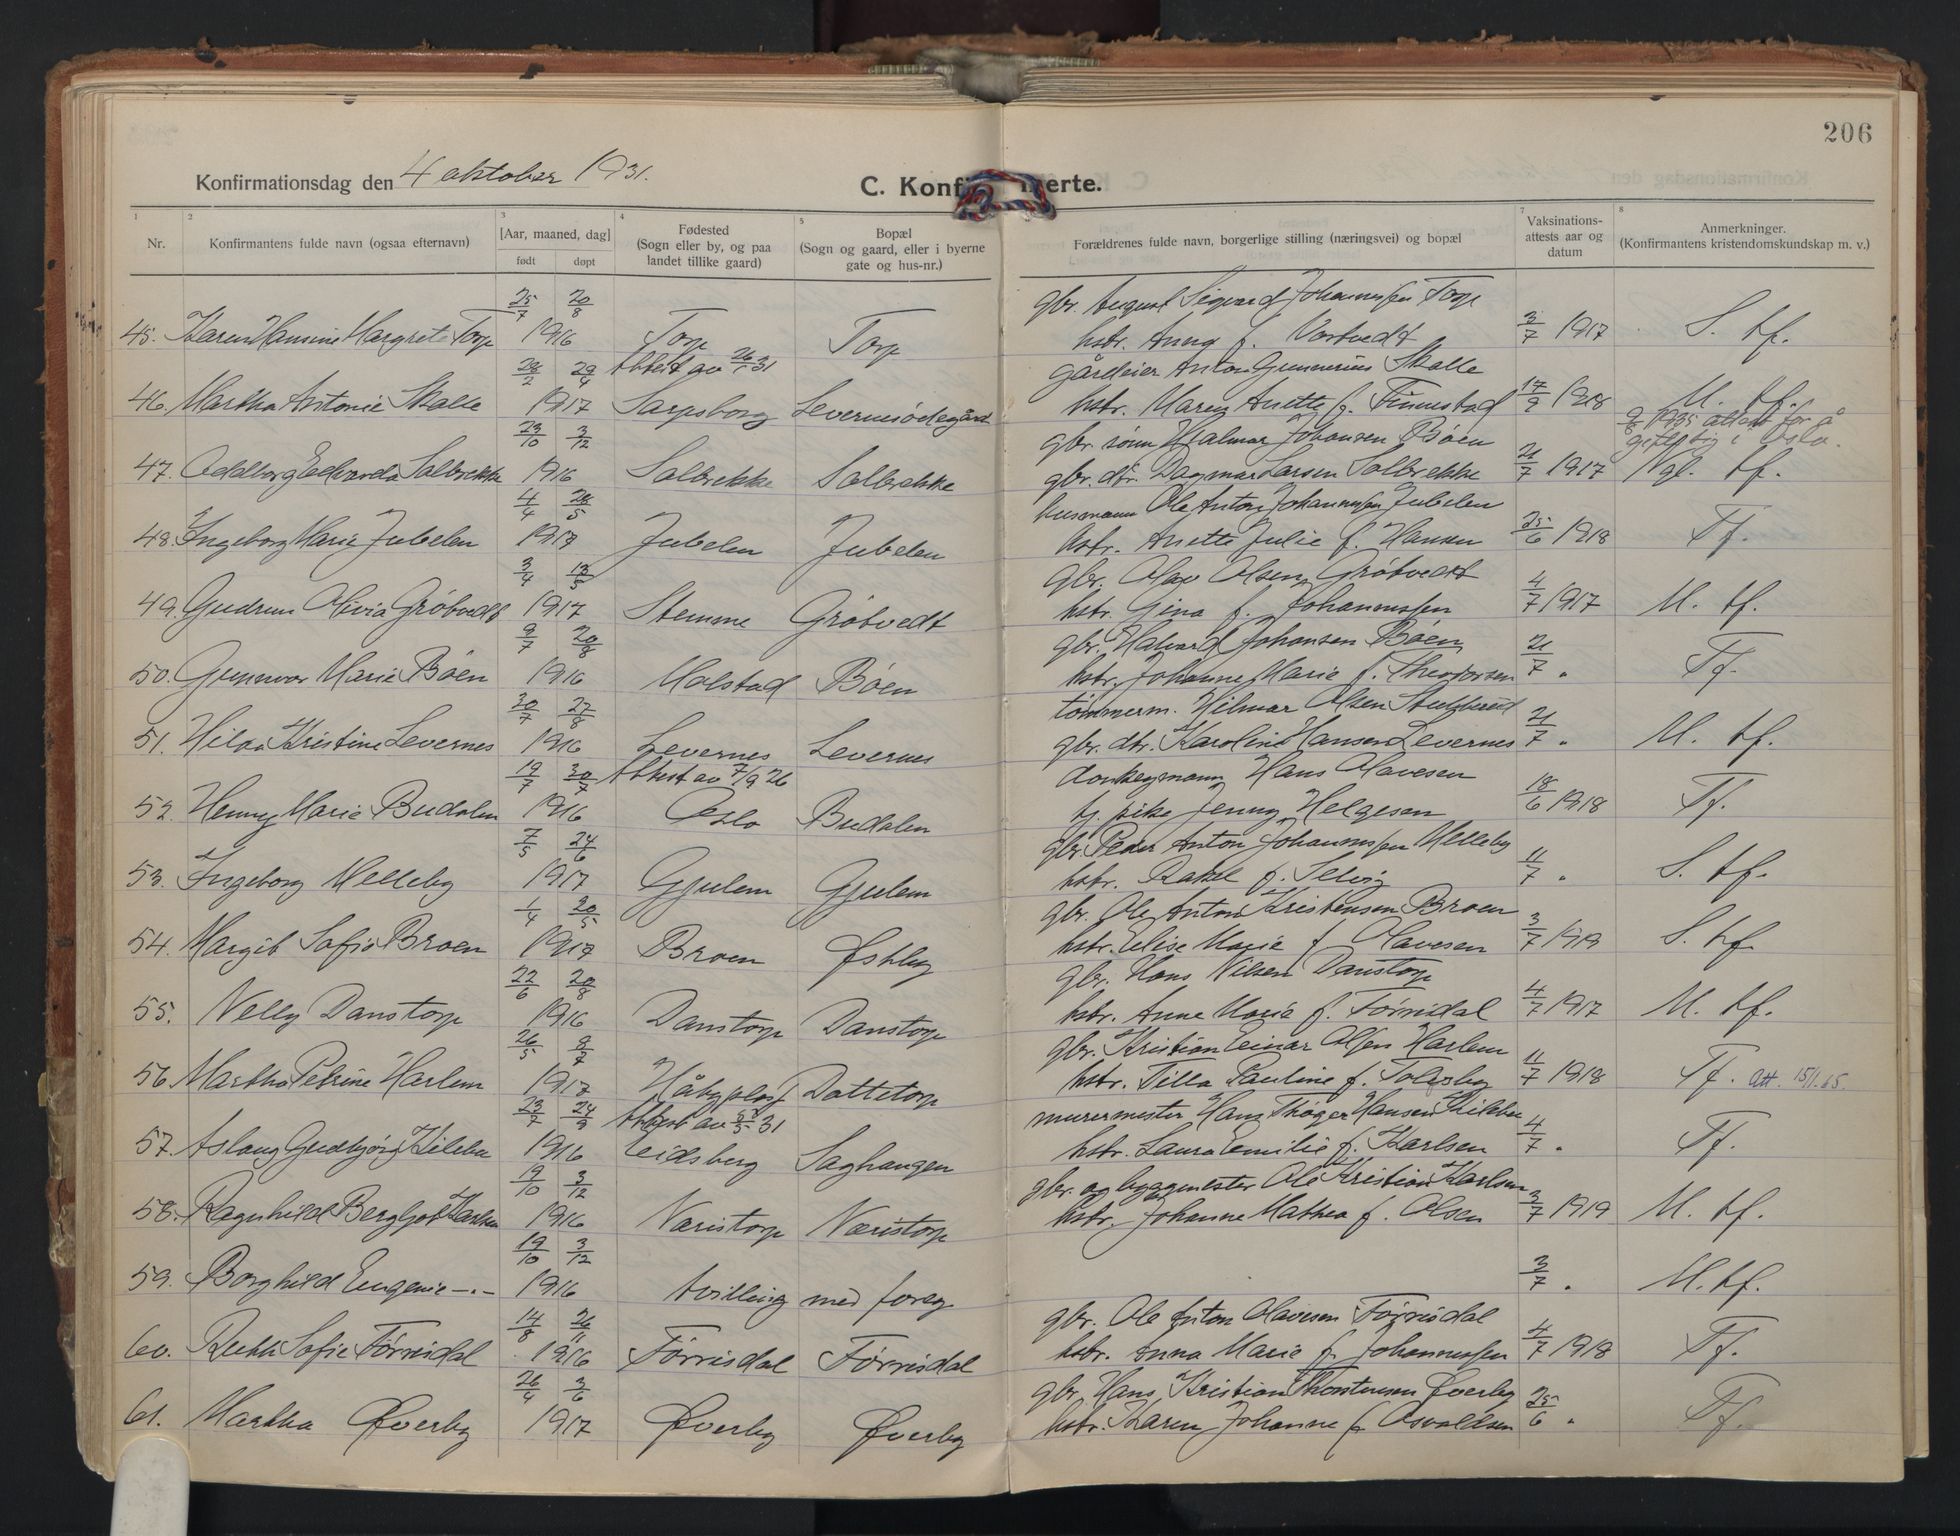 206
Konfirmationsdag den 4 oktober 1931.
C. Konfi merte.
1 2 3 4 5 7 8
Nr.
Konfirmantens fulde navn (ogsaa efternavn)
[Aar, maaned, dag]
født døpt
Fødested
(Sogn eller by, og paa
landet tillike gaard)
Bopæl
(Sogn og gaard, eller i byerne
gate og hus-nr.)
Forældrenes fulde navn, borgerlige stilling (næringsvei) og bopæl
Vaksinations-
attests aar og
datum
Anmerkninger.
(Konfirmantens kristendomskundskap m. v.)
25/7 20/8 gbr. August Sigvard Johannessen Torp
45. Karen Hansine Margrete Torp 1916 Torp Torp hstr. Anny f. Vortvedt 3/7 1917 S. tf.
28/2 29/4 Attest av 26/1 31 gårdeier Anton Gunnerius Skalle
46. Martha Antonie Skalle 1917 Sarpsborg Levernesødegård hstr. Maren Anette f. Finnestad 17/9 1928 M. tf.
23/10 3/12 gbr. sønn Hjalmar Johansen Bøen 9/8 1935 attest for å gifte sig i Oslo.
47. Oddborg Edvarda Solbrekke 1916 Solbrekke Solbrekke gbr. dtr. Dagmar Larsen Solbrekke 21/7 1917 Ngl. tf.
4/4 28/5 husmann Ole Anton Johannessen Jubelen
48. Ingeborg Marie Jubelen 1917 Jubelen Jubelen hstr. Anette Julie f. Hansen 25/6 1918 Tf.
3/4 13/5 gbr. Olav Olsen Grøtvedt
49. Gudrun Olivia Grøtvedt 1917 Stemme Grøtvedt hstr. Gina f. Johannessen 4/7 1917 M. tf.
9/7 20/8 gbr. Halvard Johansen Bøen
50. Gunnvor Marie Bøen 1916 Molstad Bøen hstr. Johanne Marie f. Theodorsen 21/7 " Tf.
30/7 27/8 tømmerm. Hilmar Olsen Stubberud
51. Hilda Kristine Levernes 1916 Levernes Levernes gbr. dtr. Karoline Hansen Levernes 21/7 " M. tf.
19/7 30/7 Attest av 7/9 26 donkeymann Hans Olavesen
52. Henny Marie Budalen 1916 Oslo Budalen tj. pike Jenny Helgesen 18/6 1918 Tf.
7/5 24/6 gbr. Peder Anton Johannessen Melleby
53. Ingeborg Melleby 1917 Gjulem Gjulem hstr. Rakel f. Selvig 11/7 " S. tf.
1/4 20/5 gbr. Ole Anton Kristensen Broen
54. Margit Sofie Broen 1917 Broen Østby hstr. Elise Marie f. Olavesen 3/7 1919 S. tf.
22/6 20/8 gbr. Hans Nilsen Danstorp
55. Nelly Danstorp 1916 Danstorp Danstorp hstr. Anne Marie f. Tørrisdal 4/7 1917 M. tf.
26/5 8/7 gbr. Kristian Einar Olsen Harlem
56. Martha Petrine Harlem 1917 Håbyplass Dottetorp hstr. Tilla Pauline f. Tolesby 11/7 1918 Tf. att. 15/1.65.
23/7 24/9 Attest av 5/5 31 murermester Hans Thøger Hansen Kilebu
57. Aslaug Gudbjørg Kilebu 1916 Eidsberg Saghaugen hstr. Laura Emilie f. Karlsen 4/7 " Tf.
19/10 3/12 gbr. og byggmester Ole Kristian Karlsen
58. Ragnhild Bergljot Karlsen 1916 Næristorp Næristorp hstr. Johanne Mathea f. Olsen 3/7 1919 M. tf.
19/10 3/12
59. Borghild Eugenie —"— 1916 tvilling med foreg 3/7 " M. tf.
14/8 26/11 gbr. Ole Anton Olavesen Tørrisdal
60. Ruth Sofie Tørrisdal 1916 Tørrisdal Tørrisdal hstr. Anna Marie f. Johannessen 4/7 1918 Tf.
26/4 3/6 gbr. Hans Kristian Thorstensen Øverby
61. Martha Øverby 1917 Øverby Øverby hstr. Karen Johanne f. Osvaldsen 25/6 " Tf.